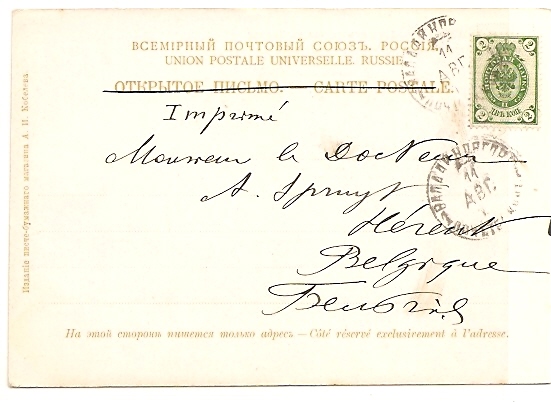 ВСЕМІРНЫЙ ПОЧТОВЫЙ СОЮЗЪ. РОССІЯ.
UNION POSTALE UNIVERSELLE. RUSSIE
ОТКРЫТОЕ ПИСЬМО. — CARTE POSTALE.
Imprimé
Monsieur le Docteur
A. Spruyt
Hérent
Belgique
Бельгія
На этой сторонѣ пишется только адресъ. — Côté réservé exclusivement à l'adresse.
Изданіе писче-бумажнаго магазина А. И. Кобелева
2 2
2 2
ДВѢ КОП
11
АВГ.
11
АВГ.